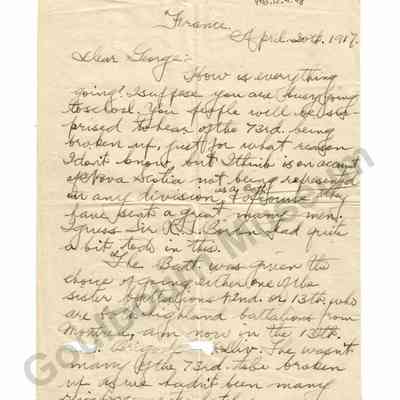 France.
April 20th, 1917.
Dear George:-
How is everything
going? I suppose you are going
to school. You people will be sur-
prised to hear of the 73rd. being
broken up, just for what reason
I don't know, but I think is on account
of Nova Scotia not being represented
in any division, as a batt. of course they
have sent a great many men.
I guess Sir R. L. Borden had quite
a bit to do in this.
The Batt. was given the
choice of going either one of the
sister battalions 42nd. or 13th, who
are both highland battalions from
Montreal, am now in the 13th
Div. There wasn't
many of the 73rd. like broken
up as we hadn't been many